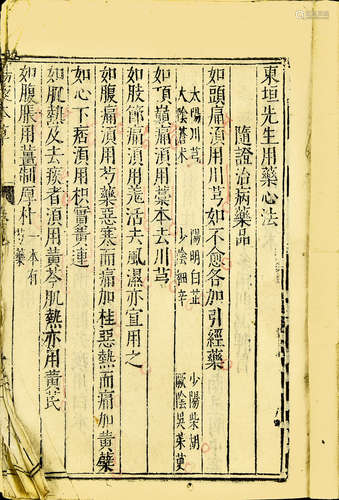 東垣先生用藥心法
隨證治病藥品
如頭痛須用川芎如不愈各加引經藥
太陽川芎 陽明白芷 少陽柴胡
太陰蒼术 少陰細辛 厥陰吳茱萸
如頂巔痛須用藁本去川芎
如肢節痛須用羌活去風濕亦宜用之
如腹痛須用芍藥惡寒而痛加桂惡熱而痛加黃蘗
如心下痞須用枳實黃連
如肌熱及去痰者須用黃芩肌熱亦用黃芪
如腹脹用薑制厚朴 一本有芍藥
湯液本草